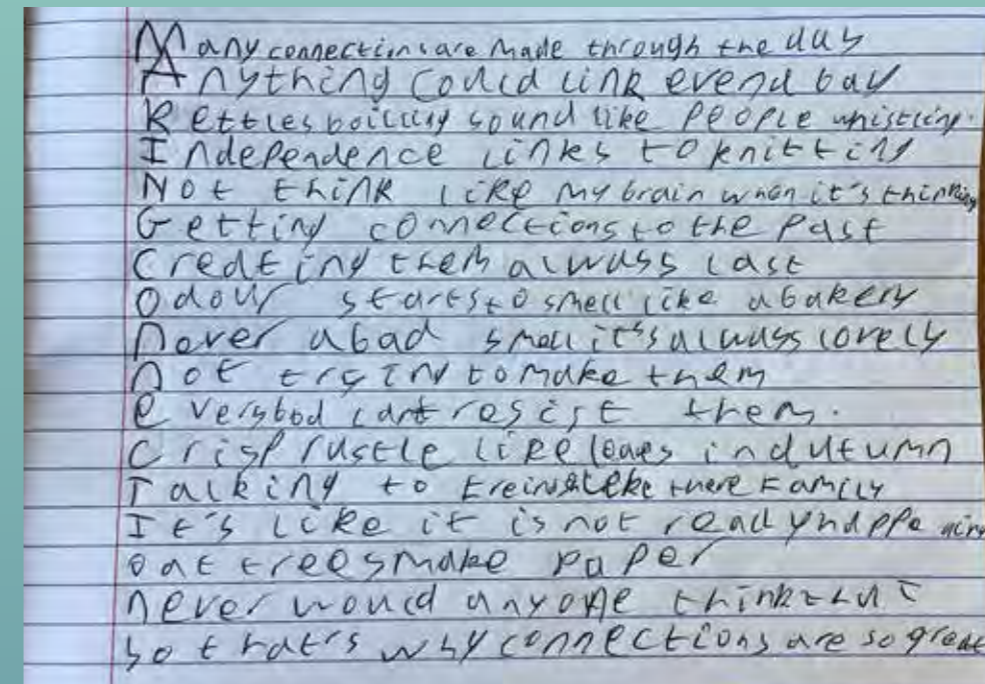 Many connections are made through the day
Anything could link even a bay
Kettles boiling sound like people whistling.
Independence links to knitting
Not think like my brain when it's thinking
Getting connections to the past
Creating them alwass last
Odour starts to smell like a bakery
Never a bad smell it's alwass lovely
Not trying to make them
Everybod cant resist them.
Crisp rustle like leaves in autumn
Talking to like there family
It's like it is not really happening
oat trees make paper
never would anyone think that
so that's why connections are so great